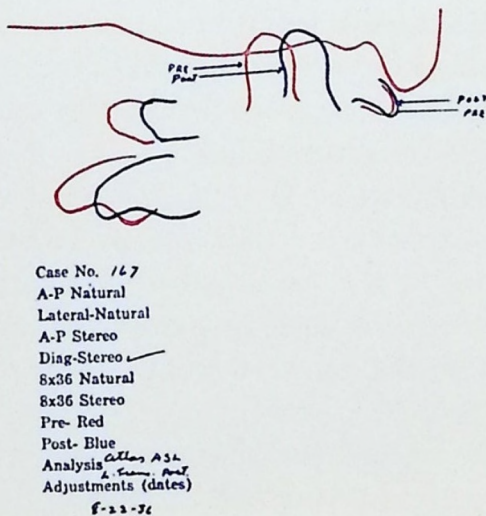 PRE
POST
POST
PRE
Case No. 167
A-P Natural
Lateral-Natural
A-P Stereo
Diag-Stereo
8x36 Natural
8x36 Stereo
Pre- Red
Post- Blue
Analysis Atlas ASL
L. Trans. Post.
Adjustments (dates)
8-23-36